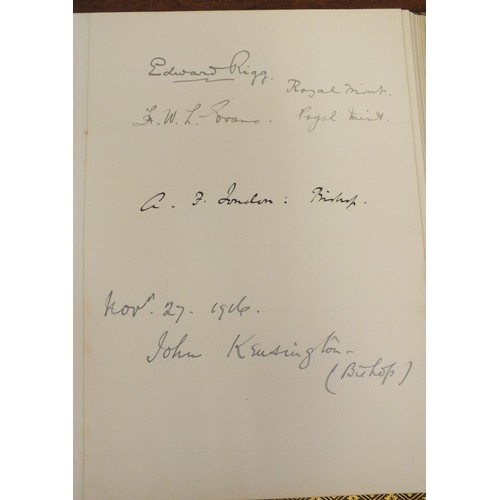 Edward Rigg. Royal Mint.
F. W. L. Evans. Royal Mint.
A. F. London: Bishop.
Novr. 27. 1916.
John Kensington-
(Bishop)